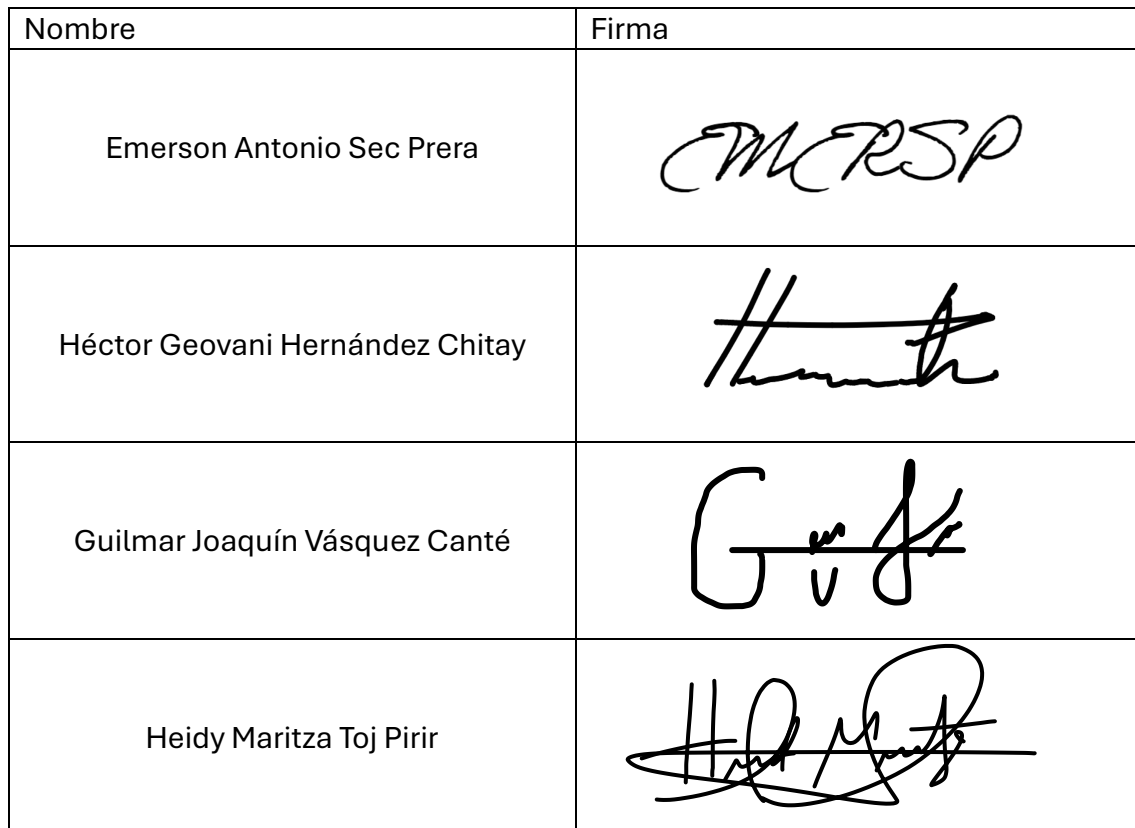 Nombre Firma
Emerson Antonio Sec Prera EMERSP
Héctor Geovani Hernández Chitay
Guilmar Joaquín Vásquez Canté
Heidy Maritza Toj Pirir